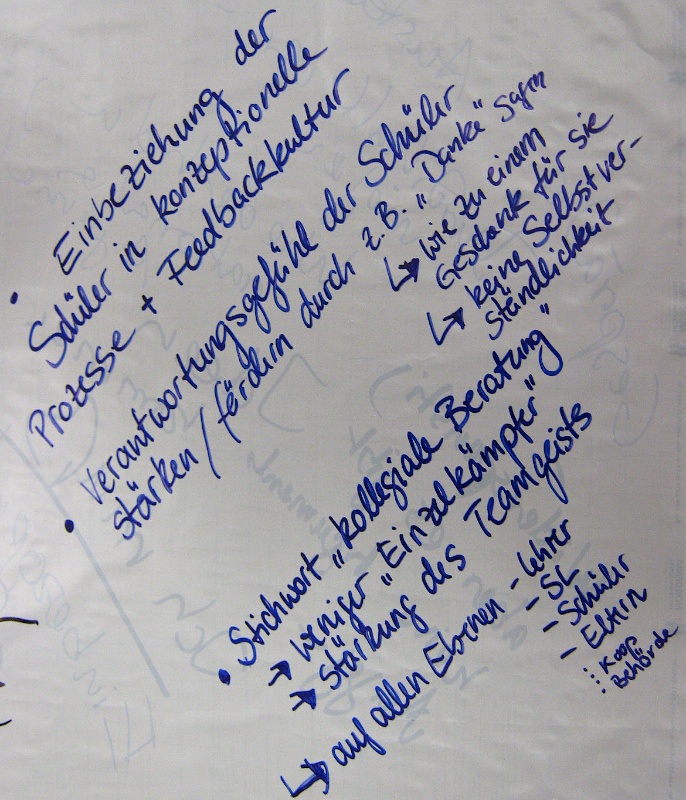 • Einbeziehung der
Schüler in konzeptionelle
Prozesse + Feedbackkultur
• Verantwortungsgefühl der Schüler
stärken / fördern durch z.B. „Danke" sagen
↳ wie zu einem
Geschenk für sie
↳ keine Selbstver-
ständlichkeit
• Stichwort „kollegiale Beratung"
→ weniger „Einzelkämpfer"
→ Stärkung des Teamgeists
↳ auf allen Ebenen - Lehrer
- SL
- Schüler
- Eltern
⋮ Koop
⋮ Behörde